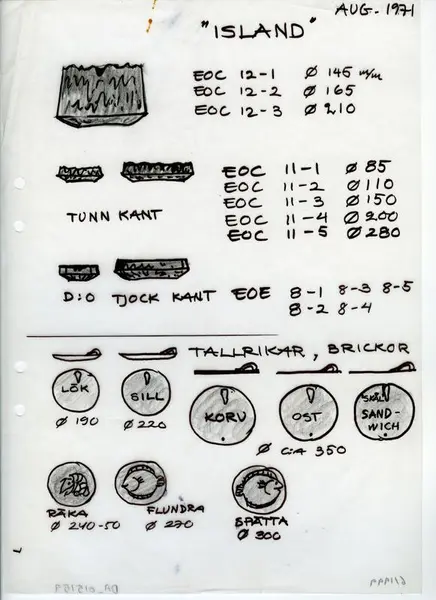 AUG. 1971
"ISLAND"
EOC 12-1 Ø 145 m/m
EOC 12-2 Ø 165
EOC 12-3 Ø 210
EOC 11-1 Ø 85
EOC 11-2 Ø 110
EOC 11-3 Ø 150
EOC 11-4 Ø 200
EOC 11-5 Ø 280
TUNN KANT
D:O TJOCK KANT EOE 8-1 8-3 8-5
8-2 8-4
TALLRIKAR, BRICKOR
LÖK
Ø 190
SILL
Ø 220
KORV
OST
SKÅL
SAND-
WICH
Ø C:A 350
RÄKA
Ø 240-50
FLUNDRA
Ø 270
SPÄTTA
Ø 300